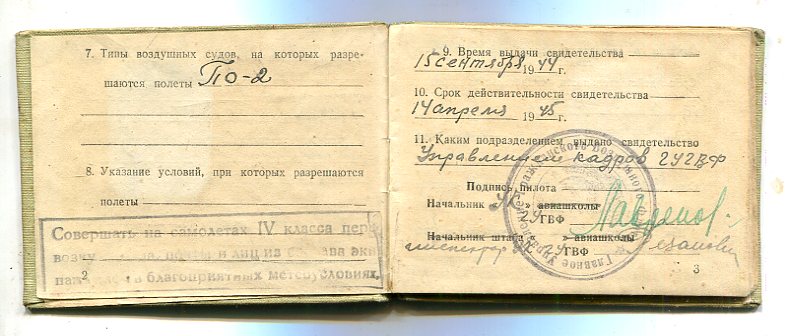 7. Типы воздушных судов, на которых разре-
шаются полеты По-2
8. Указание условий, при которых разрешаются
полеты
Совершать на самолетах IV класса пере
возку почты и лиц из состава эки
пажа в благоприятных метеоусловиях.
2
9. Время выдачи свидетельства
15 сентября 1944 г.
10. Срок действительности свидетельства
14 апреля 1945 г.
11. Каким подразделением выдано свидетельство
Управлением кадров ГУГВФ
Подпись пилота
Начальник УК » авиашколы
ГУГВФ
Начальник штаба » авиашколы
инспектор УК ГУГВФ
Главное Управление Гражданского Воздушного
3